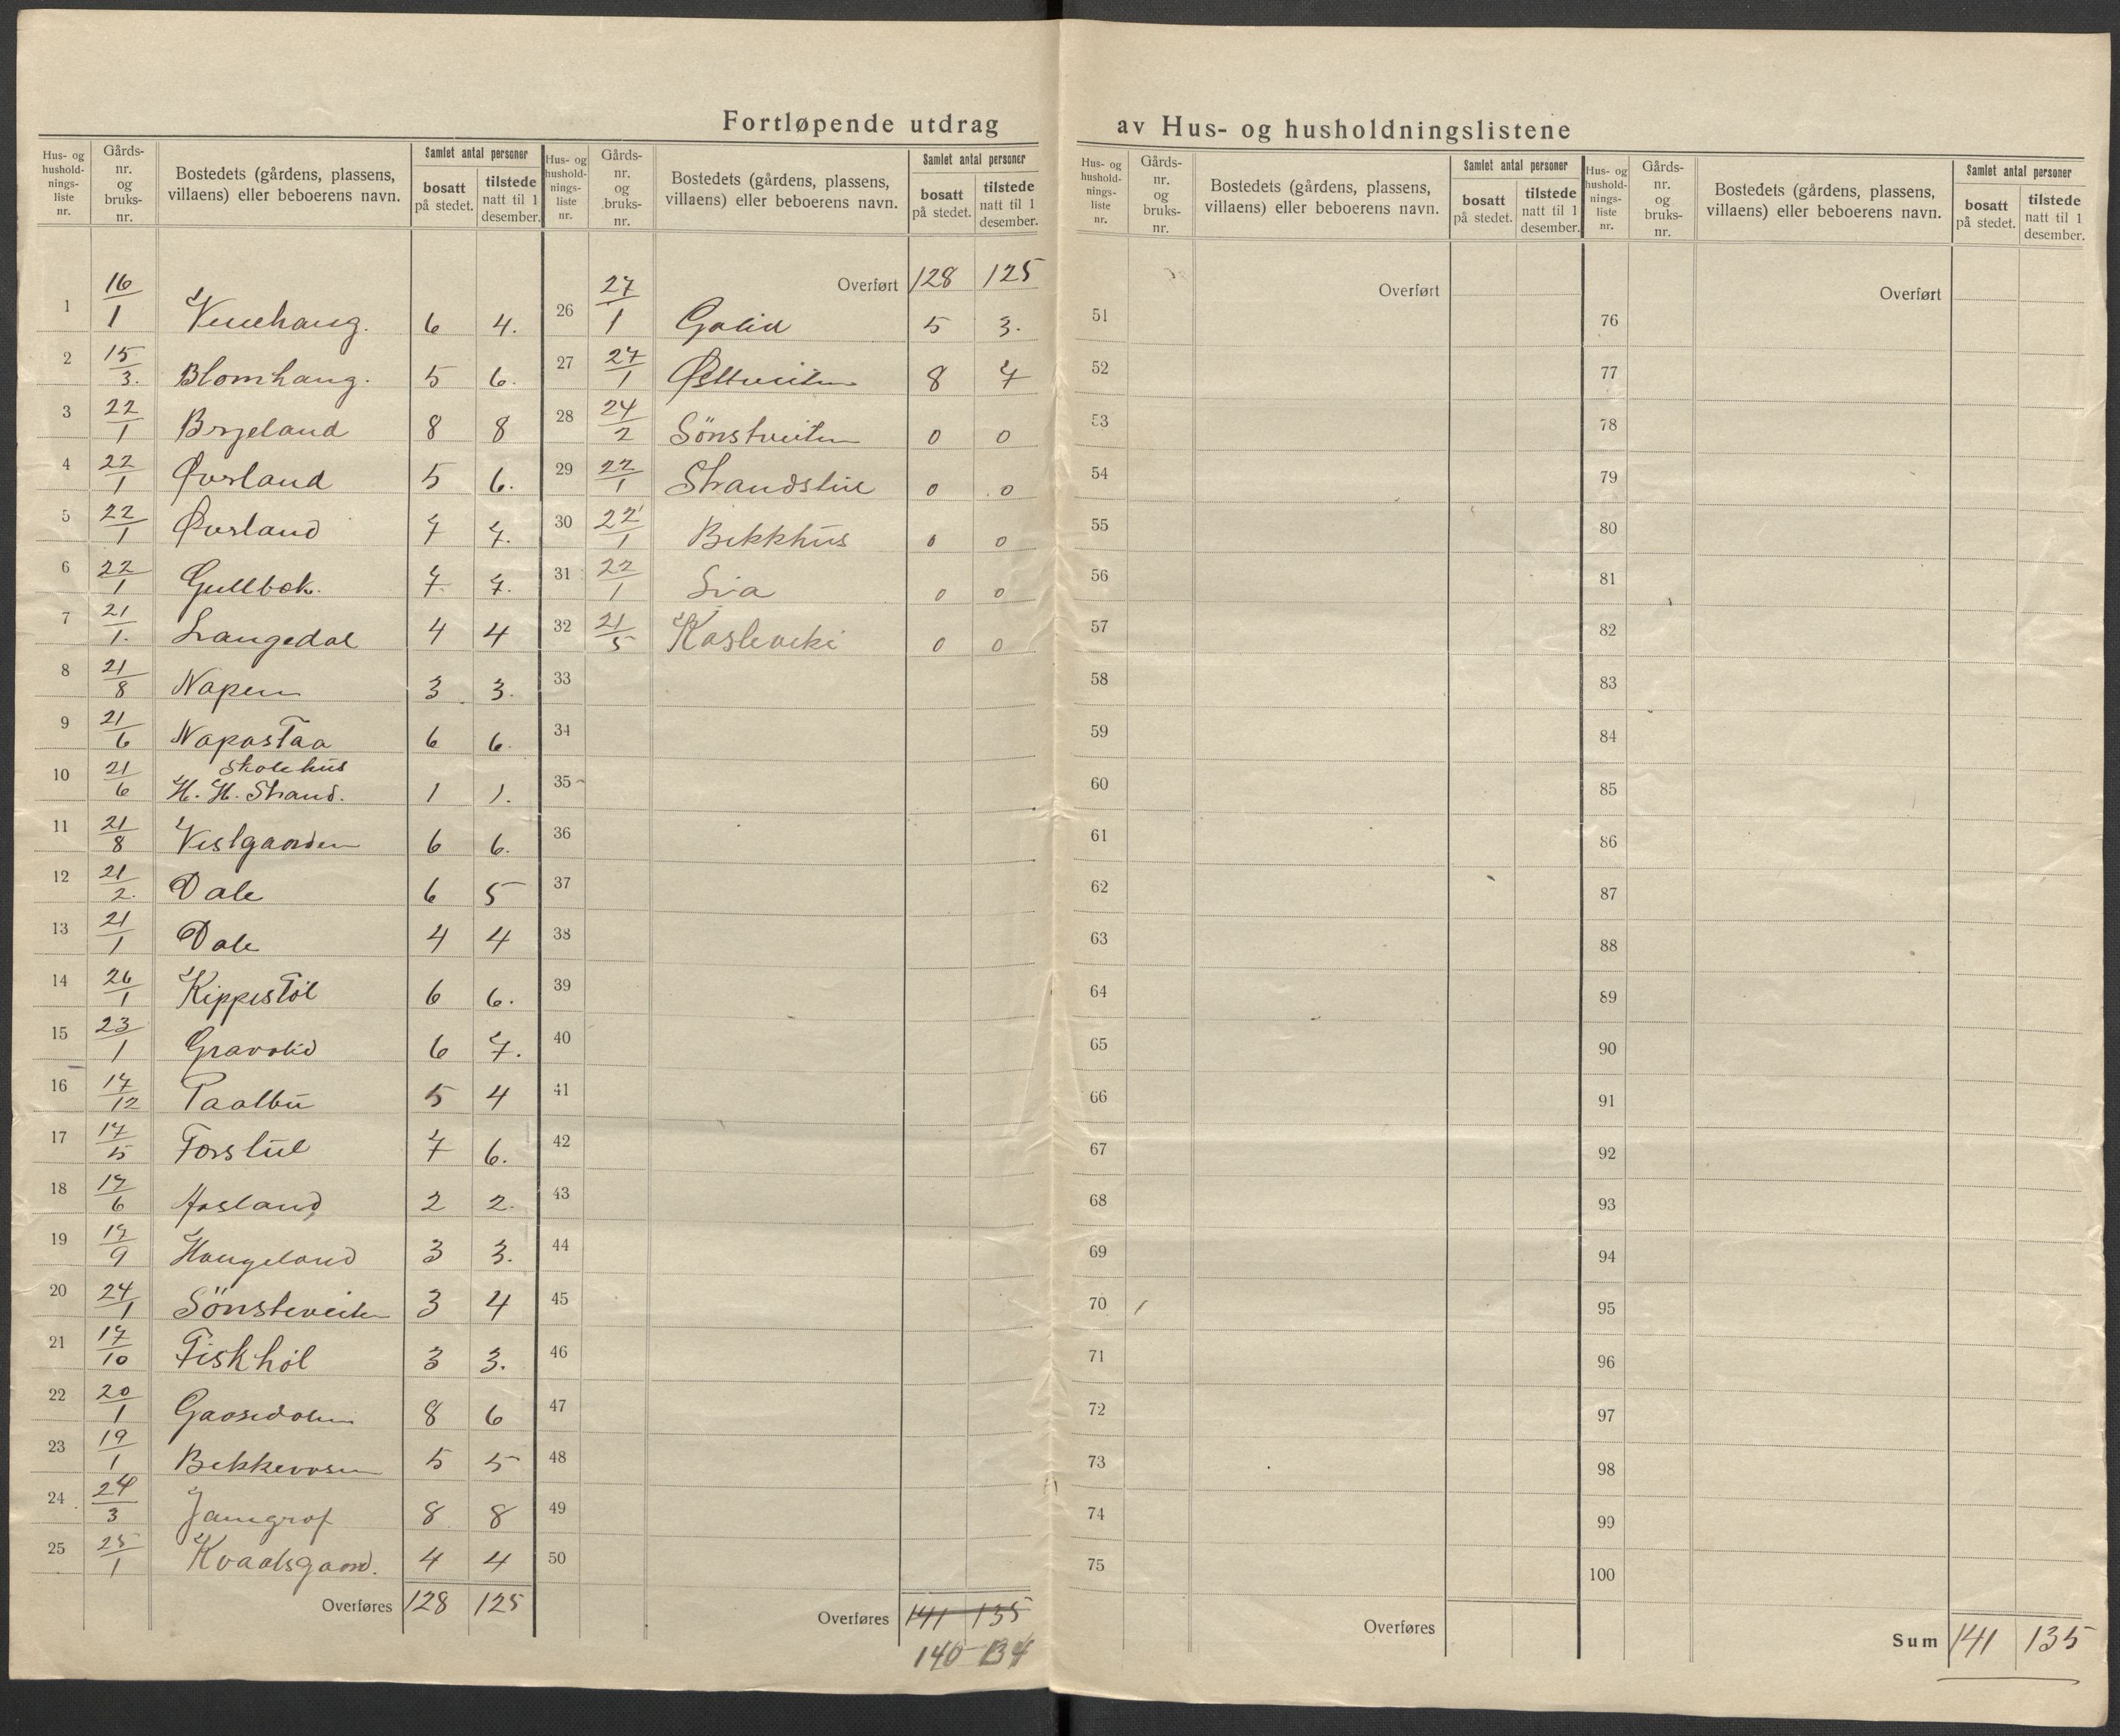 Fortløpende utdrag av Hus- og husholdningslistene
Hus- og hushold-nings-liste nr. | Gårds-nr. og bruks-nr. | Bostedets (gårdens, plassens, villaens) eller beboerens navn. | Samlet antal personer | bosatt på stedet. | tilstede natt til 1 desember.
1 16/1 Vinehaug. 6 4.
2 15/3. Blomhaug. 5 6.
3 22/1 Brydeland 8 8
4 22/1 Øverland 5 6.
5 22/1 Øverland 7 7.
6 22/1 Gullbek. 7 7.
7 21/1. Langedal 4 4
8 21/8 Napen 3 3.
9 21/6 Napastaa 6 6.
10 21/6 Skolehus
H. H. Strand. 1 1.
11 21/8 Vestgaarden 6 6.
12 21/2. Dale 6 5
13 21/1 Dale 4 4
14 26/1 Kippestøl 6 6.
15 23/1 Gravalid 6 7.
16 17/12 Paalbu 5 4
17 17/5 Forstul 7 6.
18 17/6 Aasland 2 2.
19 17/9 Haugeland 3 3.
20 24/1 Sönsteveiten 3 4
21 17/10 Fiskhøl 3 3.
22 20/1 Gaasedalen 8 6
23 19/1 Bekkevasen 5 5
24 24/3 Jamgrof 8 8
25 25/1 Kvaalsgaard. 4 4
Overføres 128 125
Hus- og hushold-nings-liste nr. | Gårds-nr. og bruks-nr. | Bostedets (gårdens, plassens, villaens) eller beboerens navn. | Samlet antal personer | bosatt på stedet. | tilstede natt til 1 desember.
Overført 128 125
26 27/1 Golid 5 3.
27 27/1 Østtveiten 8 7
28 24/2 Sönstveiten 0 0
29 22/1 Strandstul 0 0
30 22/1 Bekkhus 0 0
31 22/1 Lia 0 0
32 21/5 Kasleveki 0 0
33
34
35
36
37
38
39
40
41
42
43
44
45
46
47
48
49
50
Overføres 141 135
140 134
Hus- og hushold-nings-liste nr. | Gårds-nr. og bruks-nr. | Bostedets (gårdens, plassens, villaens) eller beboerens navn. | Samlet antal personer | bosatt på stedet. | tilstede natt til 1 desember.
Overført
51
52
53
54
55
56
57
58
59
60
61
62
63
64
65
66
67
68
69
70
71
72
73
74
75
Overføres
Hus- og hushold-nings-liste nr. | Gårds-nr. og bruks-nr. | Bostedets (gårdens, plassens, villaens) eller beboerens navn. | Samlet antal personer | bosatt på stedet. | tilstede natt til 1 desember.
Overført
76
77
78
79
80
81
82
83
84
85
86
87
88
89
90
91
92
93
94
95
96
97
98
99
100
Sum 141 135